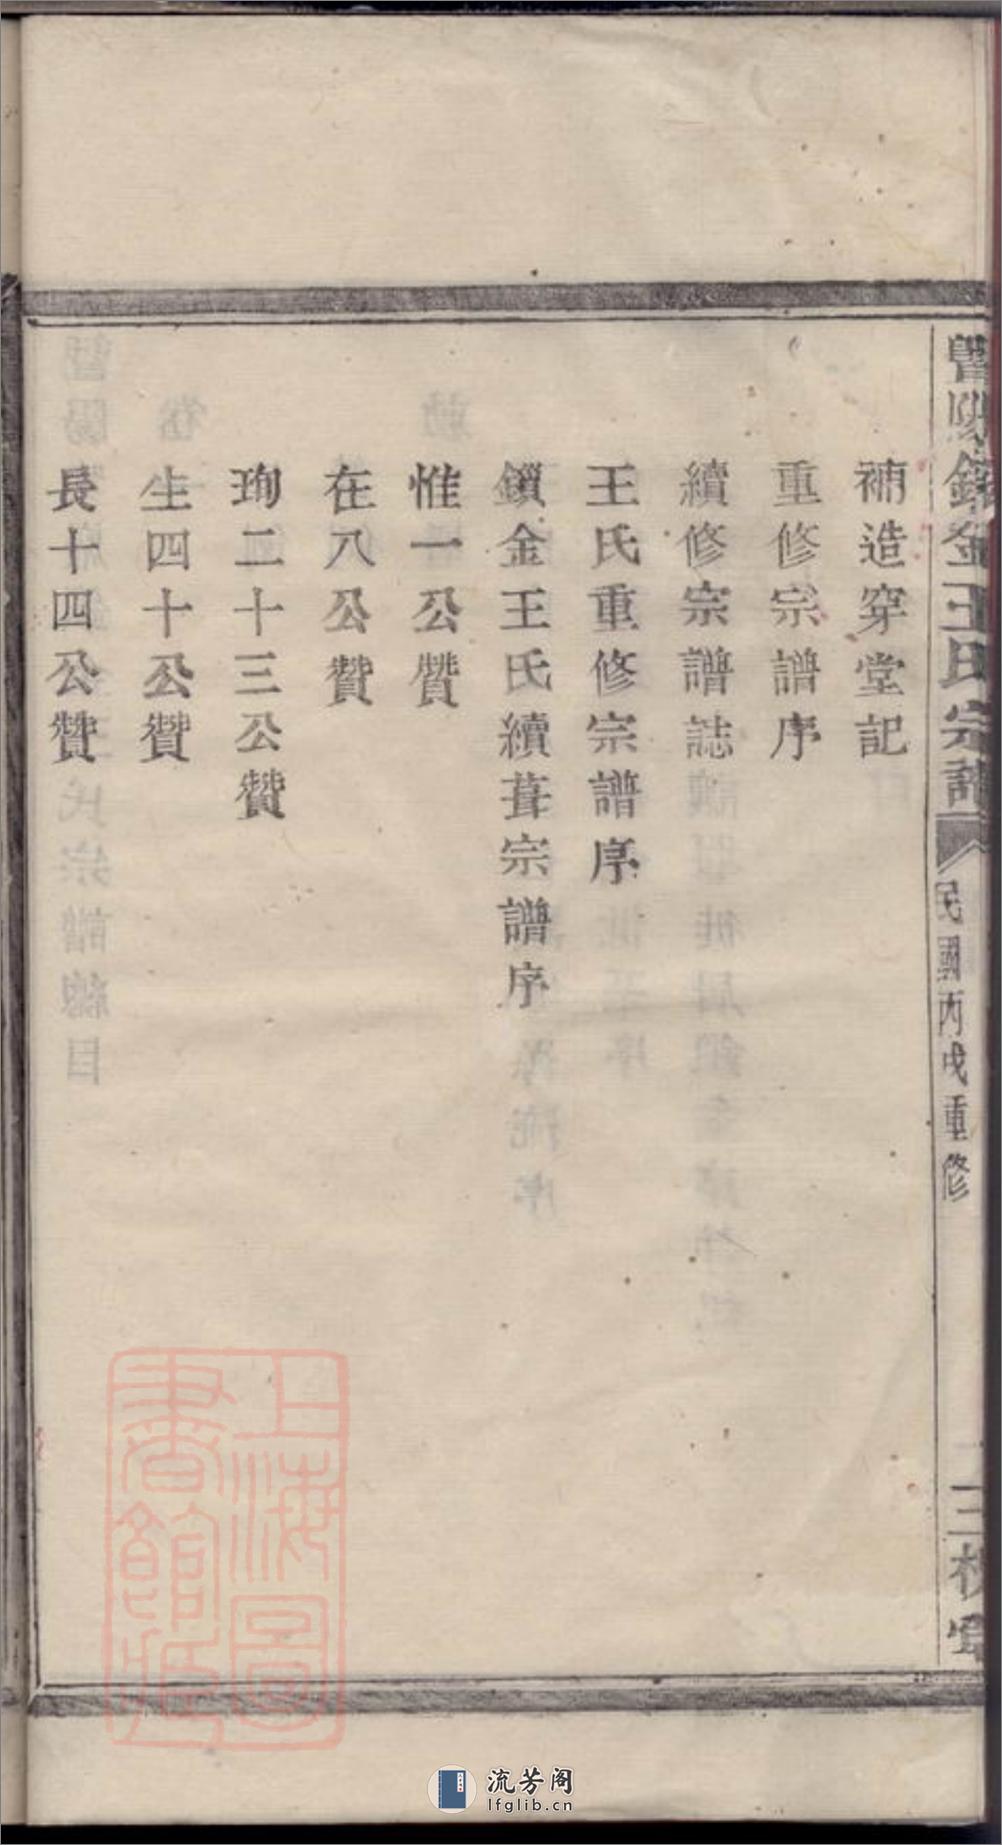 暨陽鎖金王氏宗譜
民國丙戌重修
三槐堂
補造穿堂記
重修宗譜序
續修宗譜誌
王氏重修宗譜序
鎖金王氏續葺宗譜序
惟一公贊
在八公贊
珣二十三公贊
生四十公贊
長十四公贊
上海圖書館藏
流芳阁
lfglib.cn